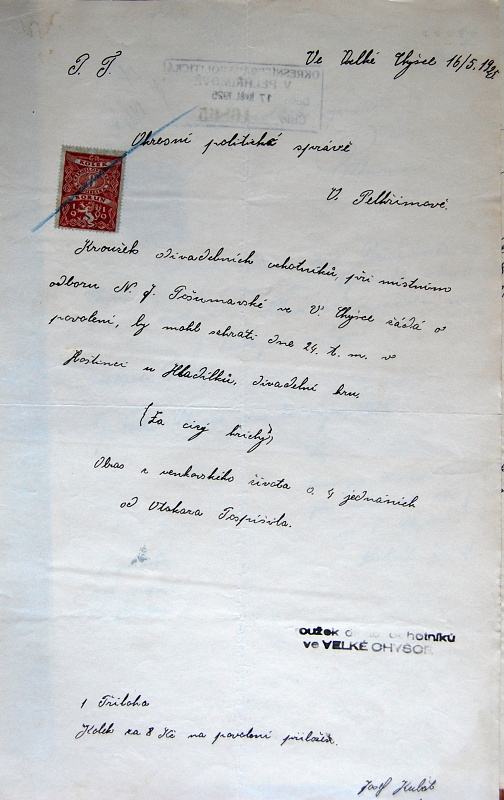 Ve Velké Chýšce 16/5. 1925
P. T.
OKRESNÍ SPRÁVA POLITICKÁ
V PELHŘIMOVĚ
17 KVĚT. 1925
Okresní politické správě
V. Pelhřimově.
KOLEK
Kroužek divadelních ochotníků, při místním
odboru N. J. Pošumavské ve V. Chýšce žádá o
povolení, by mohl sehráti dne 24. t. m. v
Hostinci u Hladilků, divadelní hru.
(Za cizý hříchý)
Obraz z venkovského života o 4 jednáních
od Otakara Pospíšila.
oužek ochotníků
ve VELKÉ CHÝŠCE
1 Příloha
Kolek za 8 Kč na povolení přiložen.
Josef